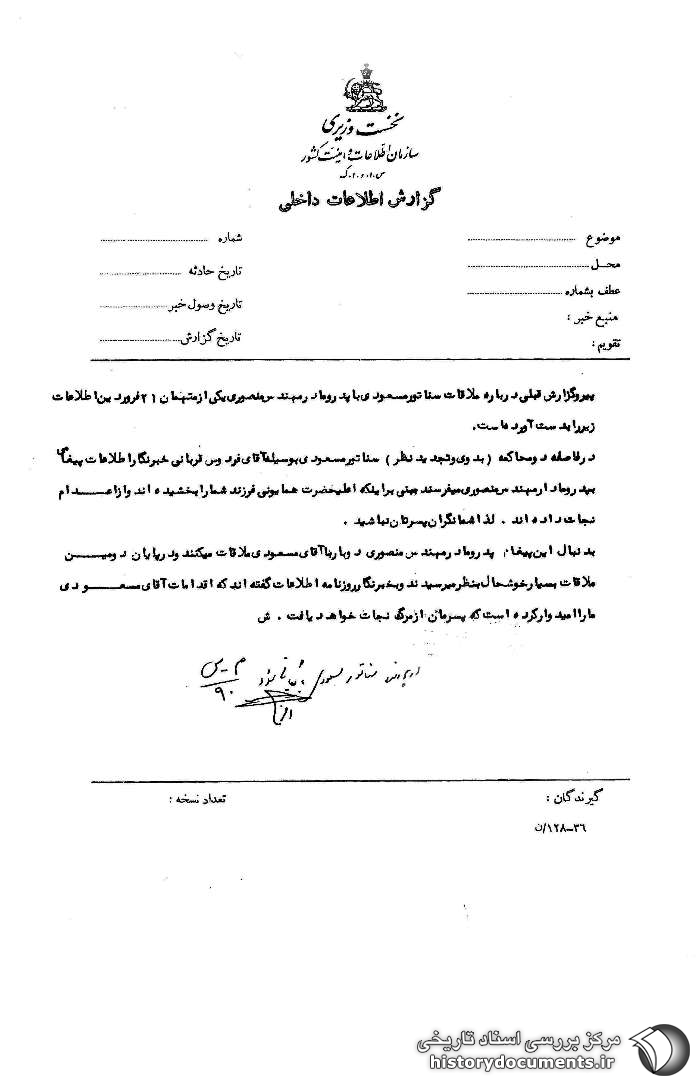 نخست وزیری
سازمان اطلاعات و امنیت کشور
س.ا.و.ا.ک
گزارش اطلاعات داخلی
موضوع
شماره
محل
تاریخ حادثه
عطف بشماره
تاریخ وصول خبر
منبع خبر :
تاریخ گزارش
تقویم :
پیرو گزارش قبلی درباره ملاقات سناتور مسعودی با پدر و مادر مهندس منصوری یکی از متهمان ۲۱ فروردین اطلاعات
زیر را بدست آورده است.
در فاصله دو محاکمه ( بدوی و تجدید نظر ) سناتور مسعودی بوسیله آقای فردوس قربانی خبرنگار اطلاعات پیغام
بپدر و مادر مهندس منصوری میفرستد مبتنی بر اینکه اعلیحضرت همایونی فرزند شما را بخشیده اند و از اعـــدام
نجات داده اند . لذا شما نگران پسرتان نباشید .
بدنبال این پیغام پدر و مادر مهندس منصوری دوبار با آقای مسعودی ملاقات میکنند و در پایان دومیـــن
ملاقات بسیار خوشحال بنظر میرسیدند و بخبرنگار روزنامه اطلاعات گفته اند که اقدامات آقای مسعـــودی
ما را امیدوار کرده است که پسرمان از مرگ نجات خواهد یافت . ش
سناتور مسعودی
م-س
۹۰
گیرندگان :
تعداد نسخه :
۳۶-۱۲۸/ن
مرکز بررسی اسناد تاریخی
historydocuments.ir